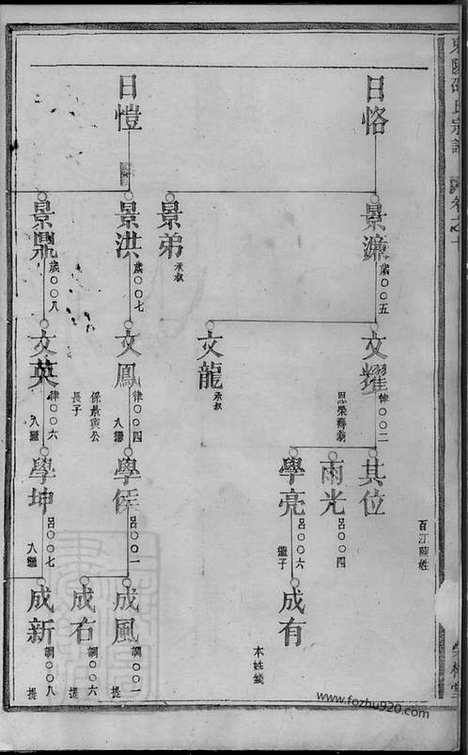 東陽邵氏宗譜
百江蘭姓
日恪
景濂
歲〇〇五
文耀
律〇〇二
恩榮釋嗣
其位
雨光
呂〇〇四
學亮
呂〇〇六
繼子
成有
本姓續
文龍
承叔
景弟
承叔
日愷
景洪
歲〇〇七
文鳳
律〇〇四
入繼
係景商公
長子
學
呂〇〇一
成風
調〇〇一
提
成右
調〇〇六
提
景鼎
歲〇〇八
文英
律〇〇六
入繼
學坤
呂〇〇七
入繼
成新
調〇〇八
提
www.fozhu920.com